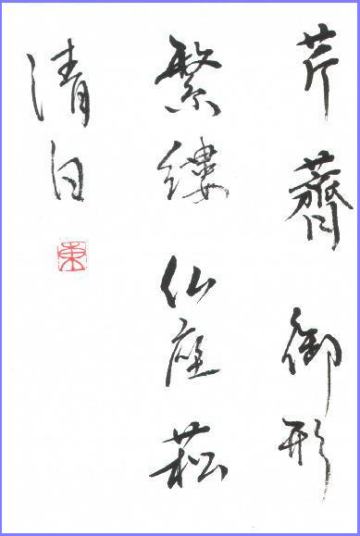 芹薺御形
繁縷仏座菘
清白
東